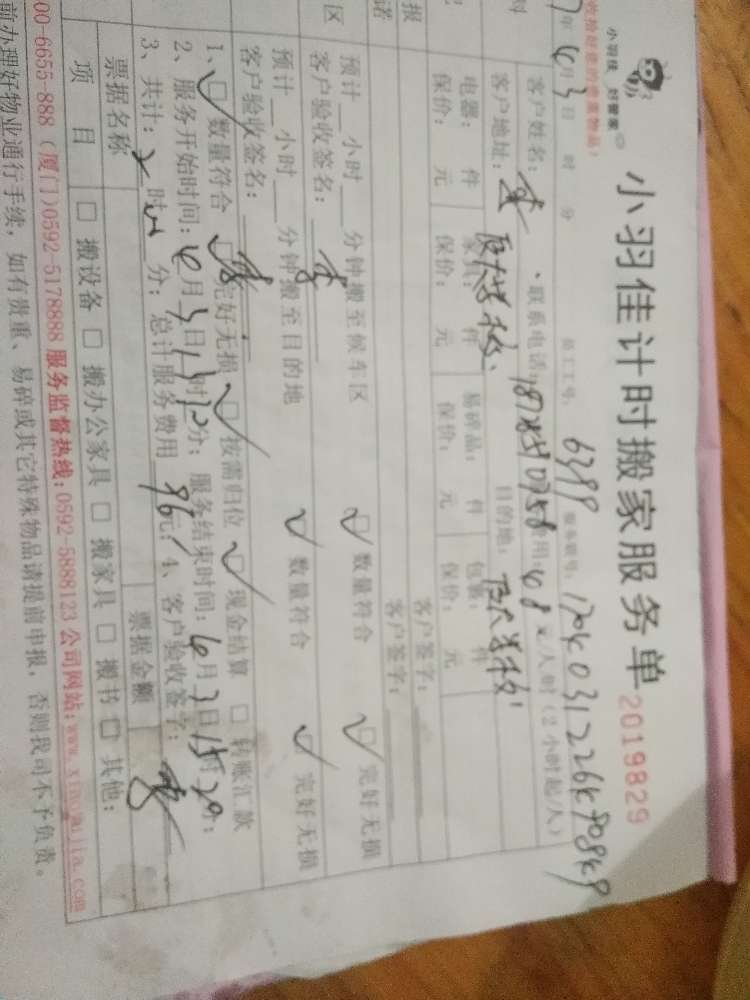 小羽佳 好管家
小羽佳计时搬家服务单 2019829
收拾好您的贵重物品!
员工工号: 6399 服务联号:
年 4月3日 时 分
客户姓名: 、联系电话: 费用: 48 元/人/时 (2小时起/人)
客户地址: 目的地:
电器: 件 家具: 件 易碎品: 件 包裹: 件
保价: 元 保价: 元 保价: 元 保价: 元
客户签字:
客户签字:
预计 小时 分钟搬至候车区 数量符合 完好无损
客户验收签名:
预计 小时 分钟搬至目的地 数量符合 完好无损
客户验收签名:
1、 数量符合 完好无损 按需归位 现金结算 转账汇款
2、服务开始时间: 4月3日13时 分; 服务结束时间: 4月3日15时20分;
3、共计: 2时 分; 总计服务费用 96元; 4、客户验收签字:
票据名称 票据金额
项 目 搬设备 搬办公家具 搬家具 搬书 其他:
00-6655-888 (厦门)0592-5178888 服务监督热线:0592-5888123 公司网站:www.xiaoyujia.com
前办理好物业通行手续, 如有贵重、易碎或其它特殊物品请提前申报, 否则我司不予负责。